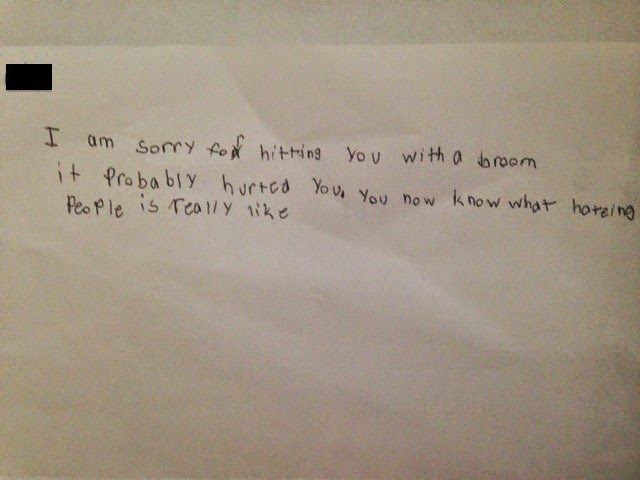 I am sorry for hitting you with a broom
it probably hurted you. you now know what hateing
People is really like